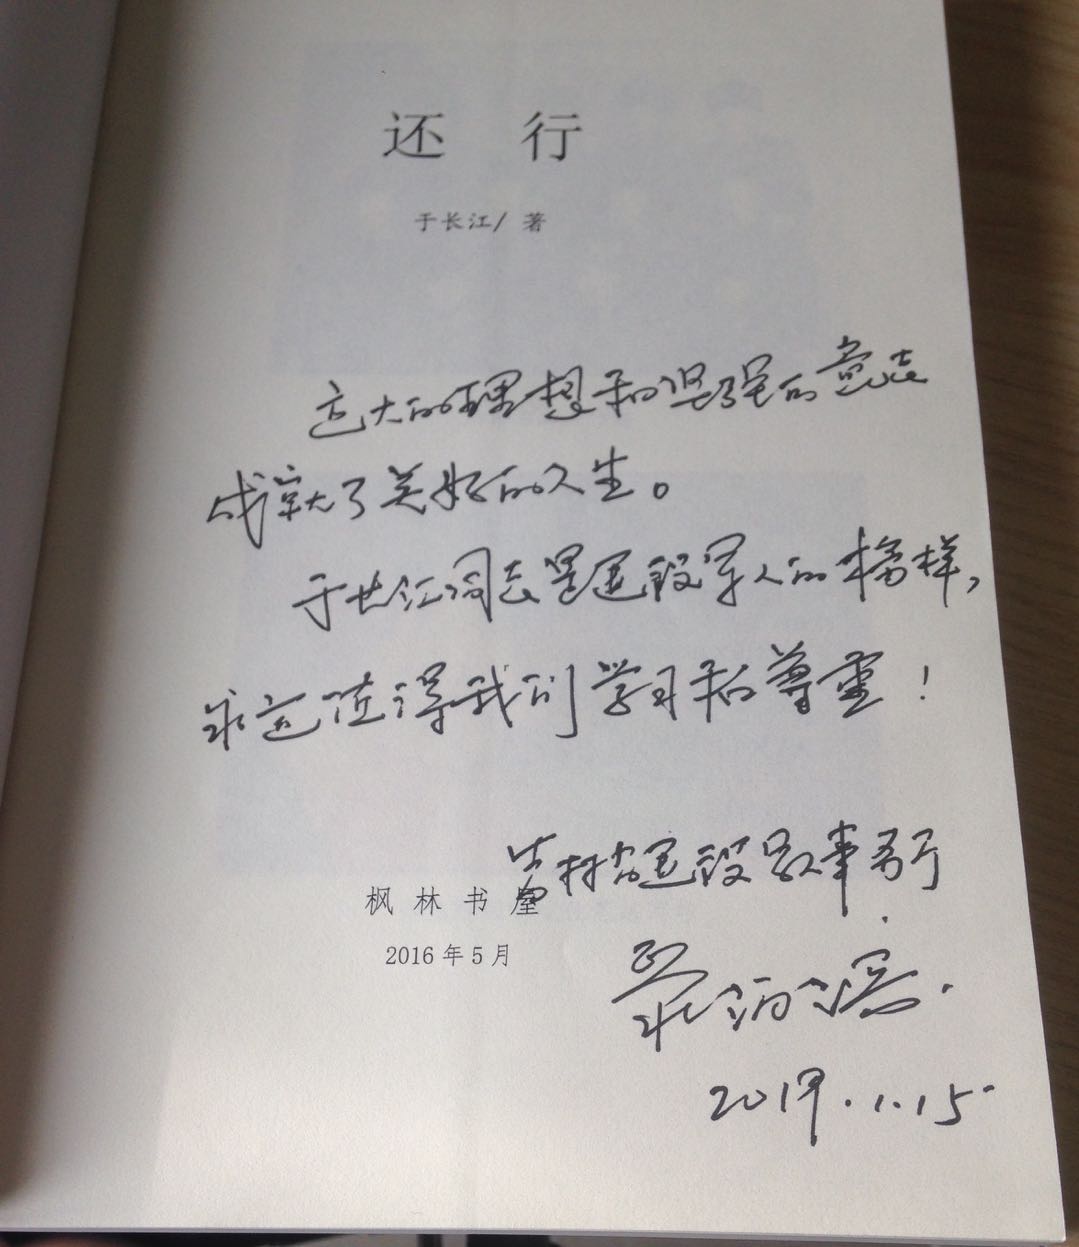 还 行
于长江/ 著
远大的理想和坚强的意志
成就了美好的人生。
于长江同志是建设军人的榜样,
永远值得我们学习和尊重!
吉林省建设
枫林书屋
2016年5月
2019.1.15